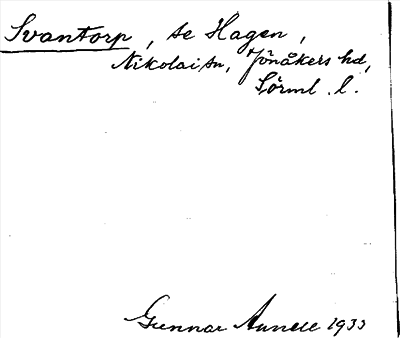 Svantorp, se Hagen,
Nikolai sn, Jönåkers hd,
Sörml. l.
Gunnar Annell 1933